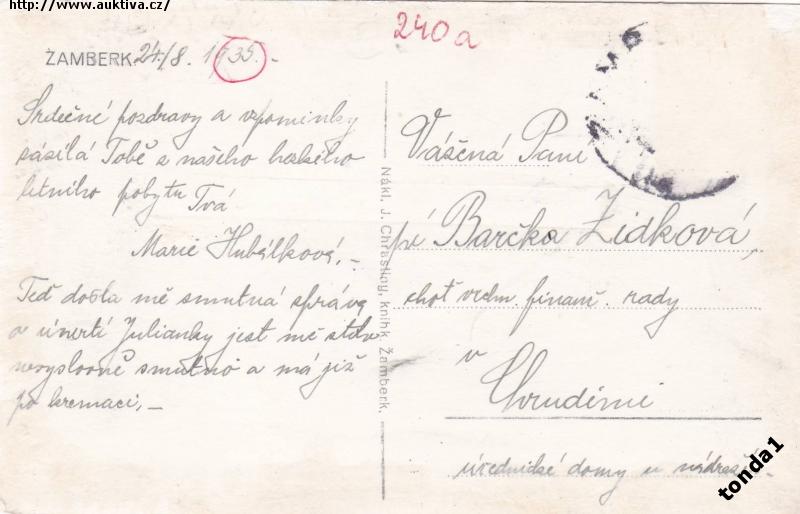 http://www.auktiva.cz/
240a
ŽAMBERK 24./8. 1935.-
Srdečné pozdravy a vzpomínky
zasílá Tobě z našeho hezkého
letního pobytu Tvá
Marie Hubálková.-
Teď došla mě smutná zpráva
o úmrtí Julianky jest mě
nevyslovně smutno a má již
po kremaci,-
Nákl. J. Chrastiny, knihk. Žamberk.
Vážená Paní
pí Barčka Zídková,
choť vrchn. finanč. rady
v
Chrudimi
úřednické domy u nádraží
tonda1